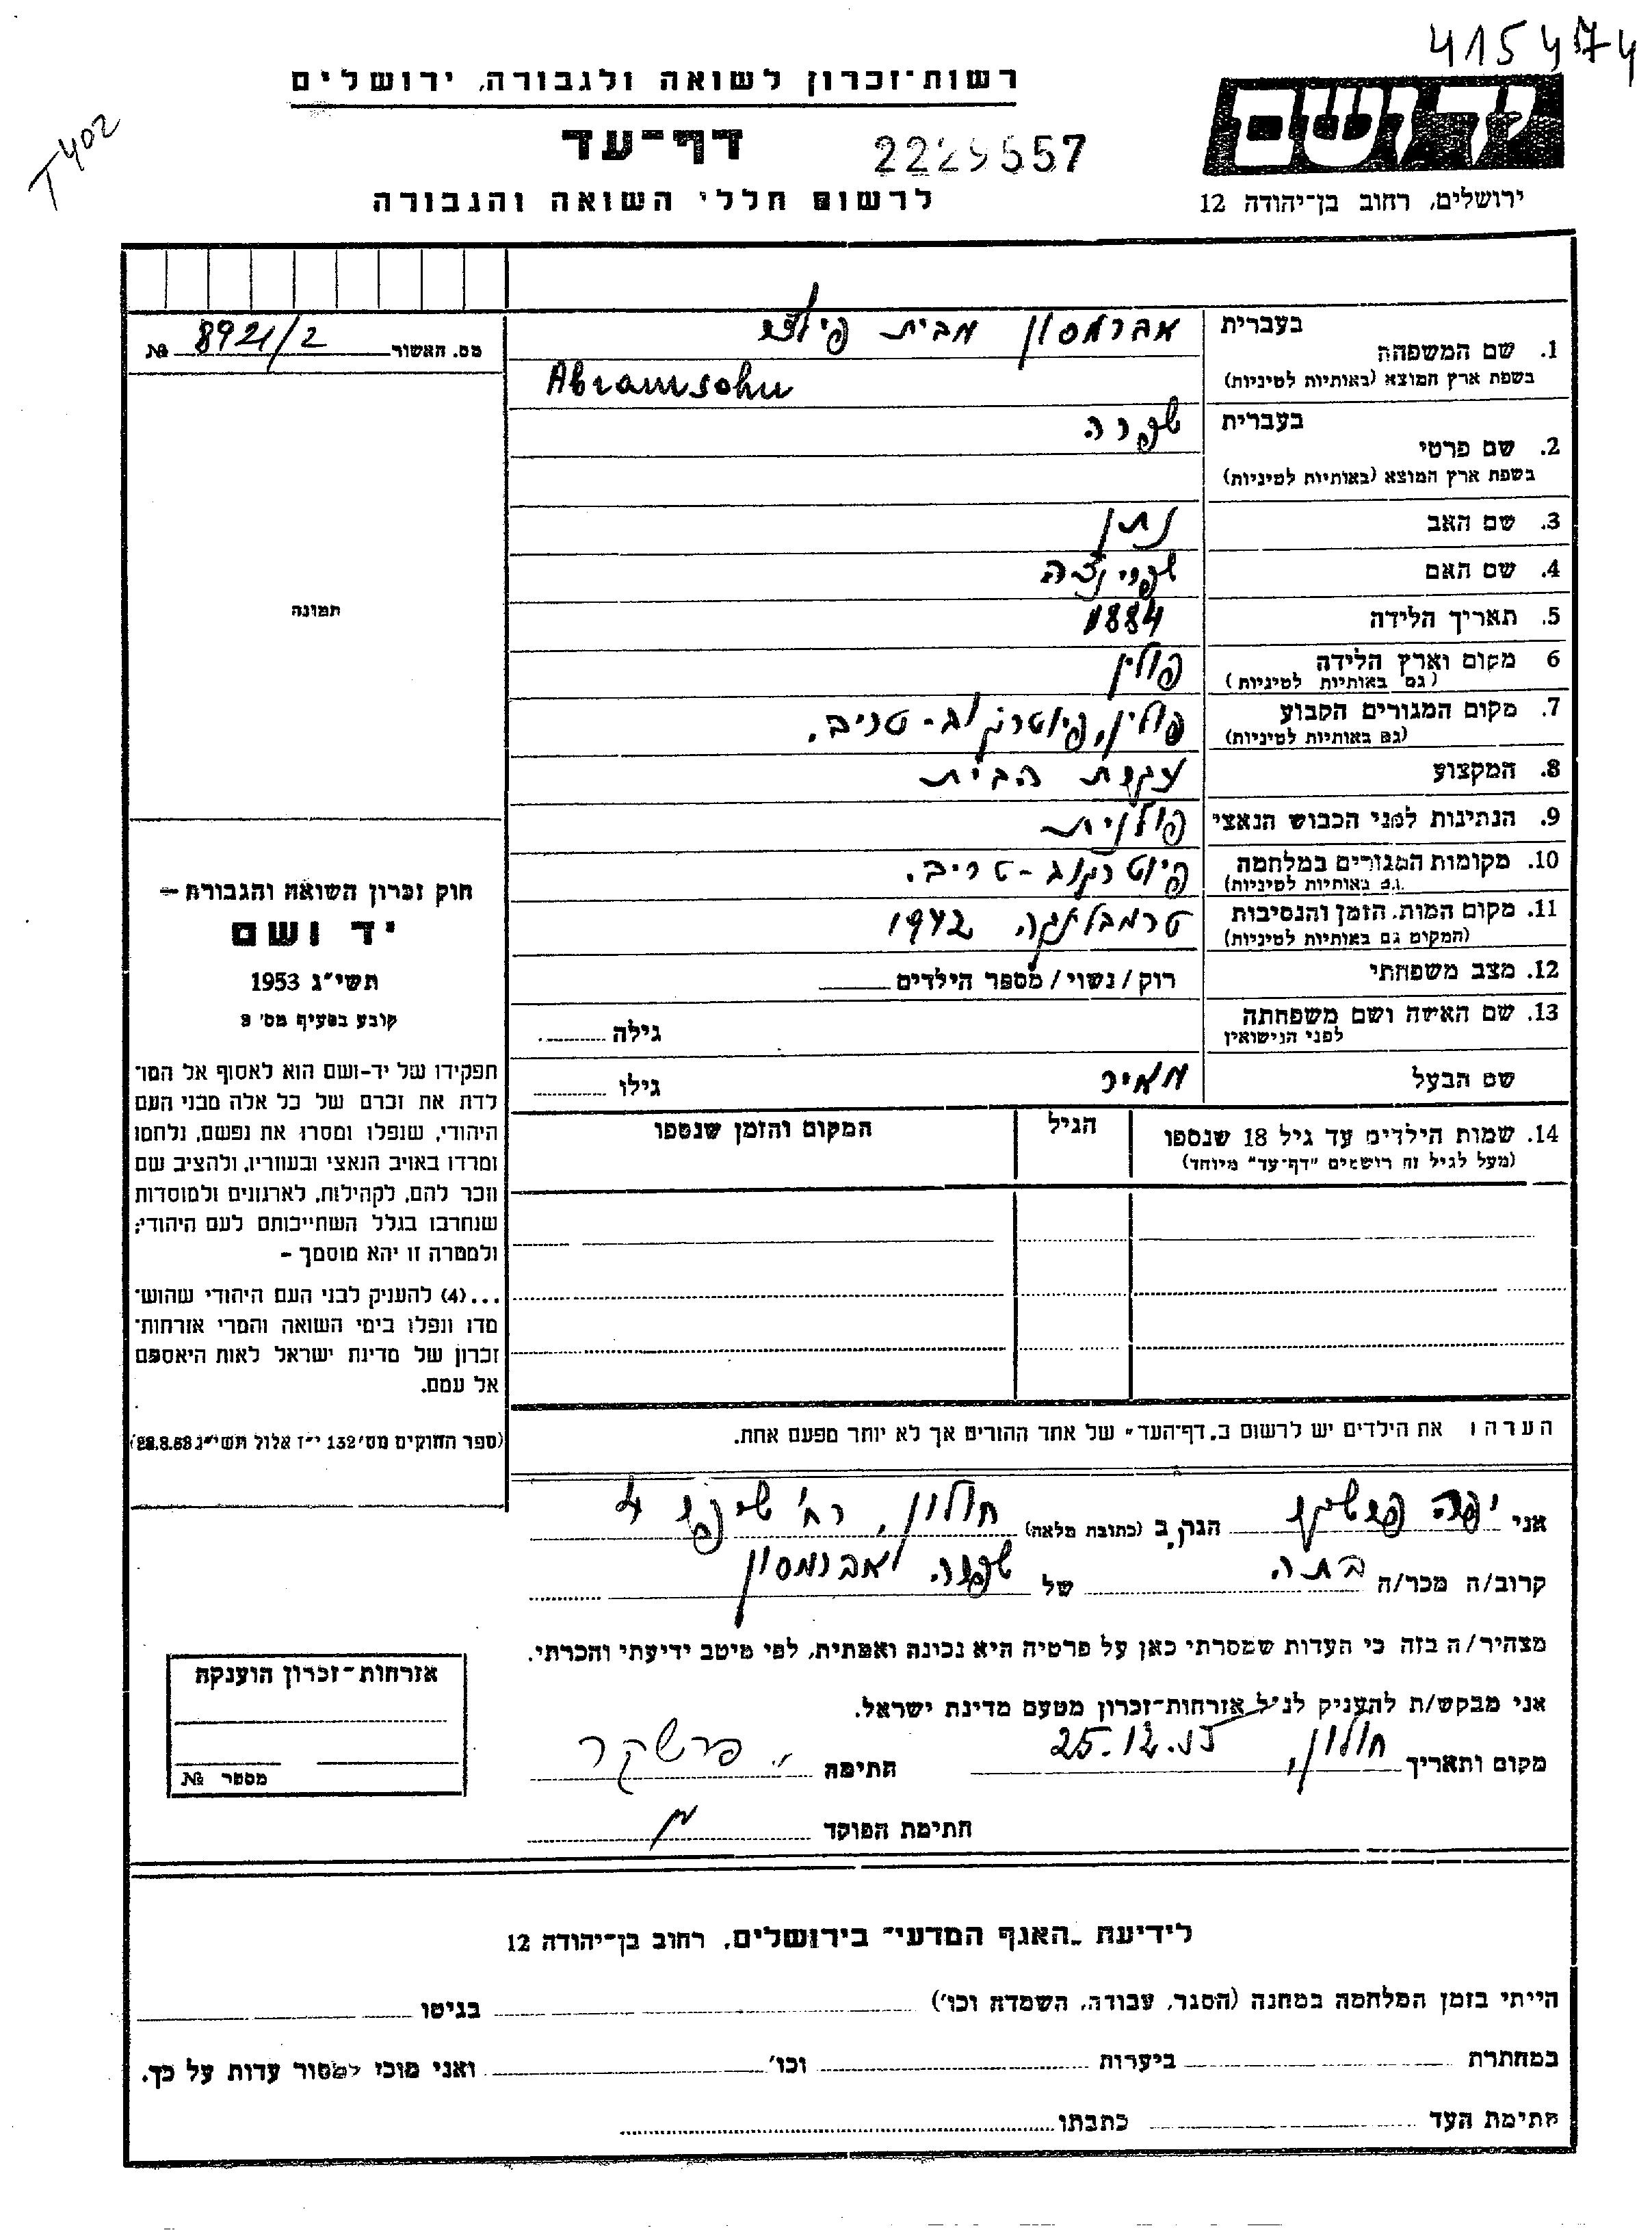 415474
רשות־זכרון לשואה ולגבורה, ירושלים
T402
דף־עד
2229557
לרשום חללי השואה והגבורה
יד ושם
ירושלים, רחוב בן־יהודה 12
מס. האשור 8921/2 №
תמונה
חוק זכרון השואה והגבורה –
יד ושם
תשי"ג 1953
קובע בסעיף מס' 2
תפקידו של יד-ושם הוא לאסוף אל המו־
לדת את זכרם של כל אלה מבני העם
היהודי, שנפלו ומסרו את נפשם, נלחמו
ומרדו באויב הנאצי ובעוזריו, ולהציב שם
וזכר להם, לקהילות, לארגונים ולמוסדות
שנחרבו בגלל השתייכותם לעם היהודי;
ולמטרה זו יהא מוסמך –
...(4) להעניק לבני העם היהודי שהוש־
מדו ונפלו בימי השואה והמרי אזרחות־
זכרון של מדינת ישראל לאות היאספם
אל עמם.
(ספר החוקים מס' 132 י"ז אלול תשי"ג 28.8.53)
בעברית אברמסון מבית
1. שם המשפחה
בשפת ארץ המוצא (באותיות לטיניות) Abramsohn
בעברית שפרה
2. שם פרטי
בשפת ארץ המוצא (באותיות לטיניות)
3. שם האב נתן
4. שם האם שפרינצה
5. תאריך הלידה 1884
6 מקום וארץ הלידה פולין
(גם באותיות לטיניות)
7. מקום המגורים הקבוע פולין, פיוטרקוב-טריב.
(גם באותיות לטיניות)
8. המקצוע עקרת הבית
9. הנתינות לפני הכבוש הנאצי פולנית
10. מקומות המגורים במלחמה פיוטרקוב-טריב.
(גם באותיות לטיניות)
11. מקום המות, הזמן והנסיבות טרמבלינקה 1942
(המקום גם באותיות לטיניות)
12. מצב משפחתי רוק/נשוי/מספר הילדים
13. שם האשה ושם משפחתה גילה
לפני הנישואין
שם הבעל מאיר גילו
14. שמות הילדים עד גיל 18 שנספו הגיל המקום והזמן שנספו
(מעל לגיל זה רושמים "דף־עד" מיוחד)
הערה: את הילדים יש לרשום ב„דף־העד" של אחד ההורים אך לא יותר מפעם אחת.
אני יפה פרשקר הגר, ב (כתובת מלאה) חולון, רח' 4
קרוב/ה מכר/ה בתה של שפרה אברמסון
מצהיר/ה בזה כי העדות שמסרתי כאן על פרטיה היא נכונה ואמתית, לפי מיטב ידיעתי והכרתי.
אני מבקש/ת להעניק לנ"ל אזרחות־זכרון מטעם מדינת ישראל.
מקום ותאריך חולון, 25.12.55 חתימה י. פרשקר
חתימת הפוקד
אזרחות־זכרון הוענקה
מספר №
לידיעת „האגף המדעי" בירושלים, רחוב בן־יהודה 12
הייתי בזמן המלחמה במחנה (הסגר, עבודה, השמדה וכו') בגיטו
במחתרת ביערות וכו' ואני מוכן למסור עדות על כך.
חתימת העד כתבתו